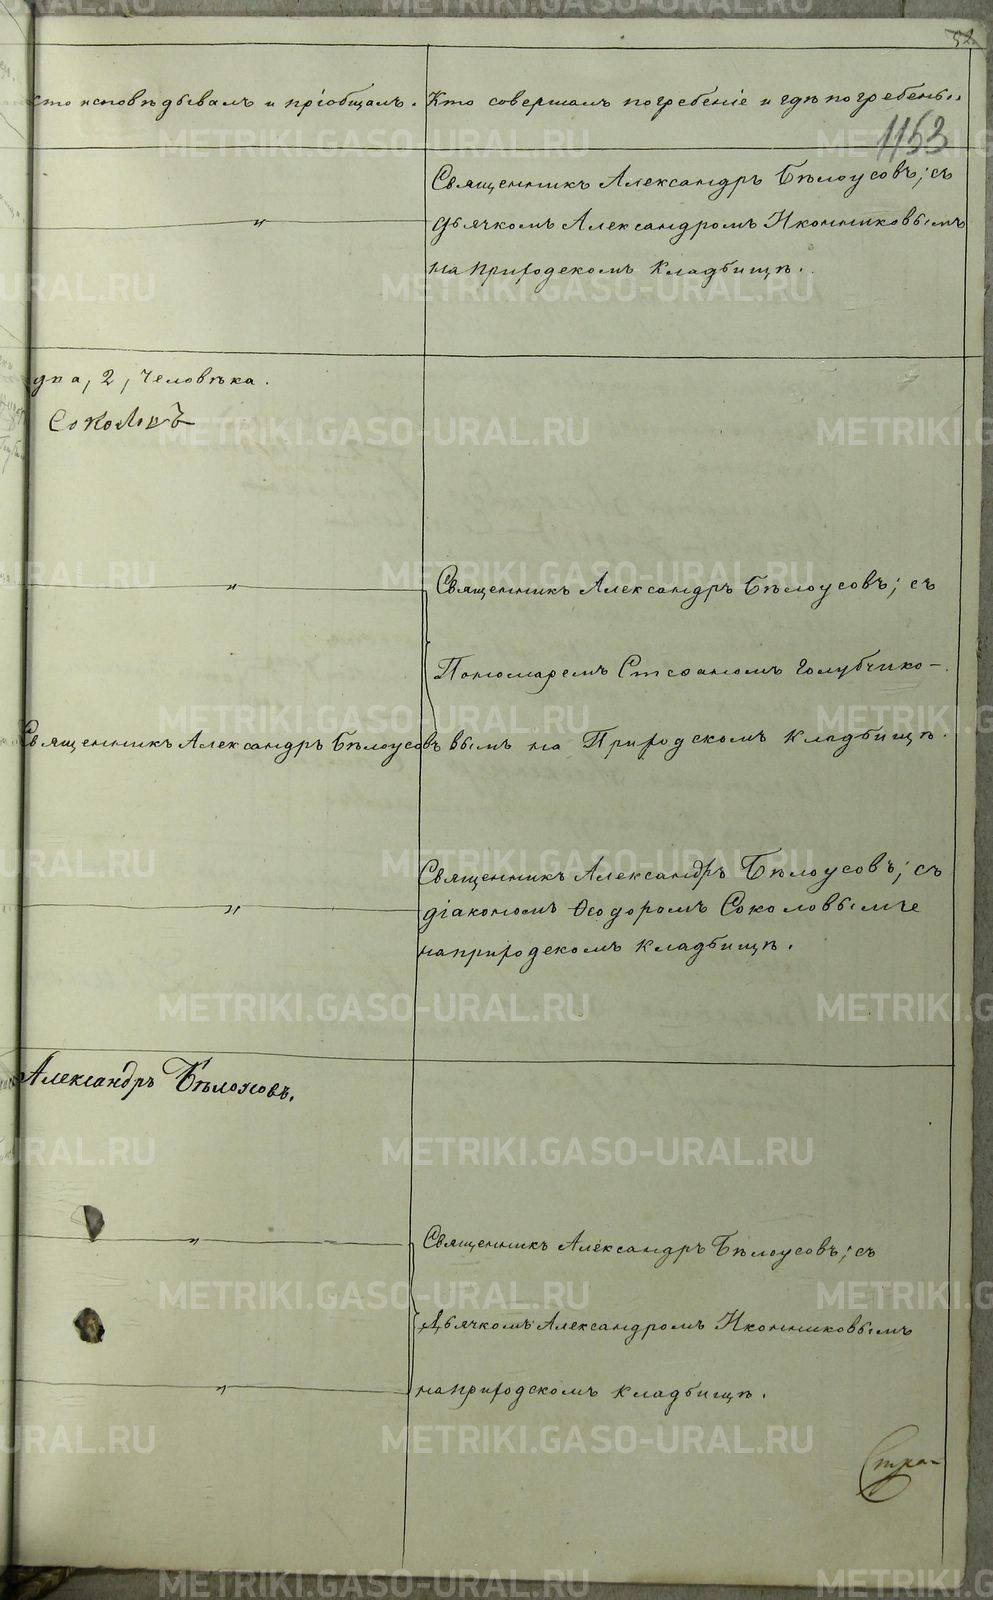 52
Кто исповѣдывалъ и пріобщалъ. Кто совершалъ погребеніе и гдѣ погребены.
1153
Священникъ Александръ Бѣлоусовъ; съ
дьячкомъ Александромъ Иконниковымъ
на приходскомъ кладбищѣ.
два, 2, человѣка.
Соколовъ
Священникъ Александръ Бѣлоусовъ; съ
Пономаремъ Стефаномъ Голубчико-
Священникъ Александръ Бѣлоусовъ вымъ на Приходскомъ кладбищѣ.
Священникъ Александръ Бѣлоусовъ; съ
діакономъ Ѳеодоромъ Соколовымъ
на приходскомъ кладбищѣ.
Александръ Бѣлоусовъ.
Священникъ Александръ Бѣлоусовъ; съ
Дьячкомъ Александромъ Иконниковымъ
на приходскомъ кладбищѣ.
METRIKI.GASO-URAL.RU